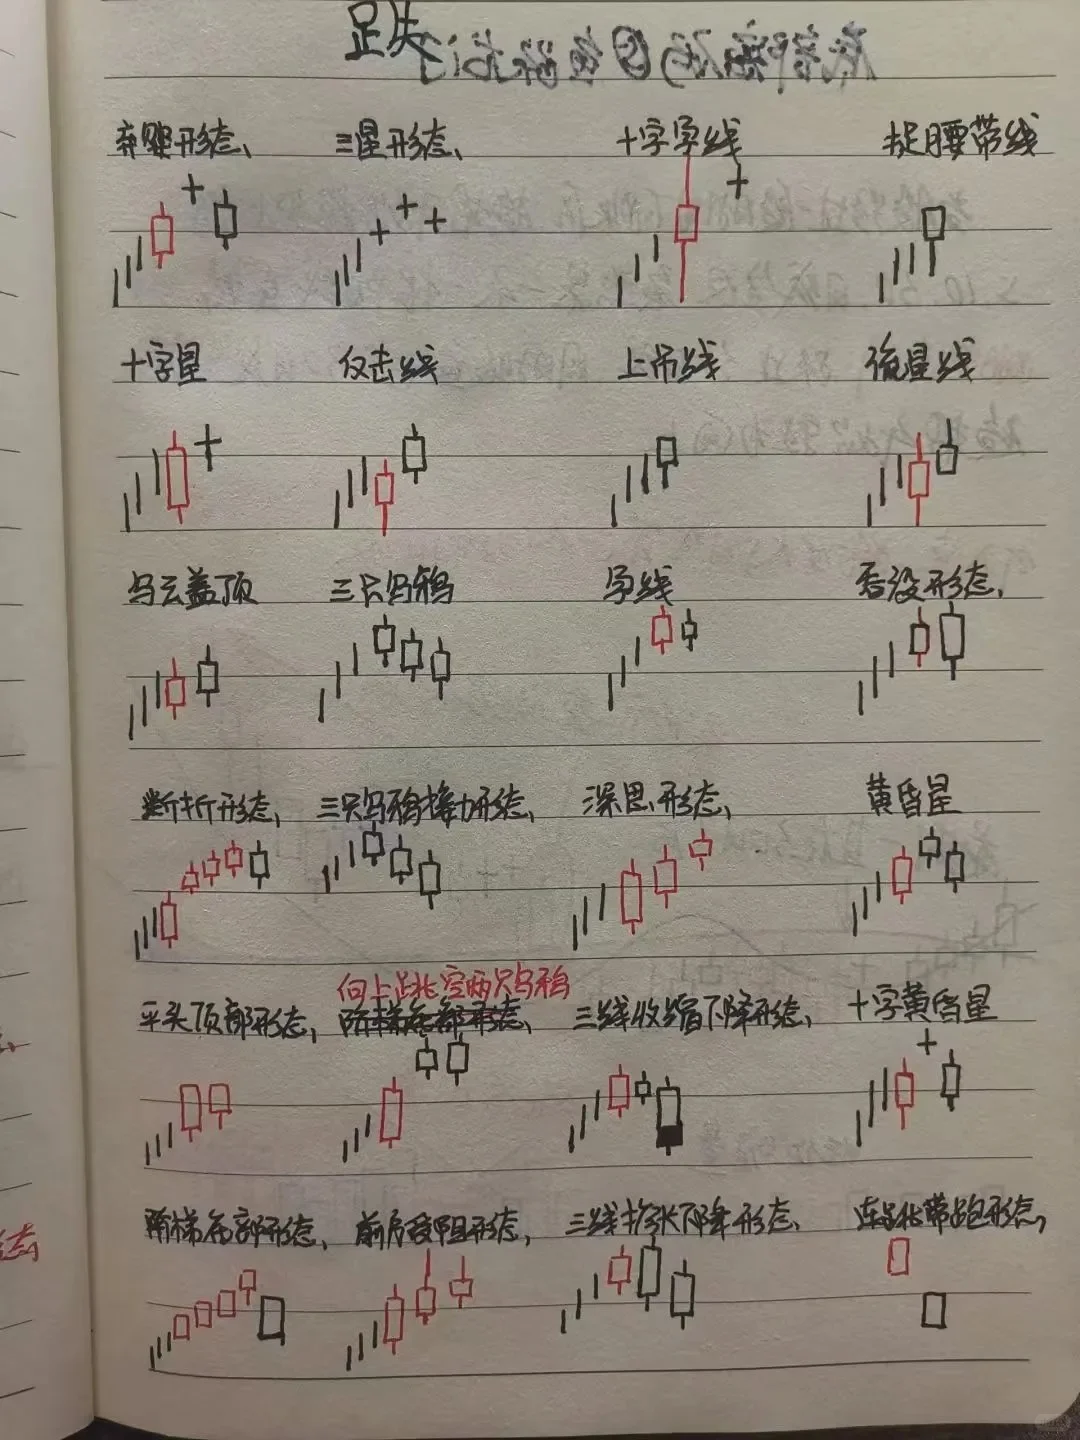 弃婴形态、 三星形态、 十字孕线 捉腰带线
十字星 反击线 上吊线 流星线
乌云盖顶 三只乌鸦 孕线 吞没形态、
形态、 三只乌鸦接力形态、 深思形态、 黄昏星
向上跳空两只乌鸦
平头顶部形态、 三线收缩下降形态、 十字黄昏星
阶梯 形态、 前 受阻形态、 三线扩张下降形态、 形态、